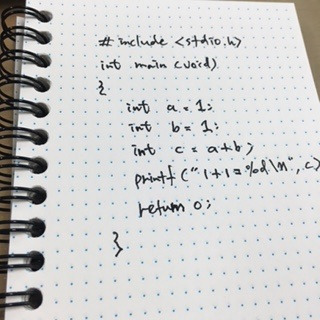 # include <stdio.h>
int main (void)
{
int a = 1;
int b = 1;
int c = a+b;
printf ("1+1=%d\n", c)
return 0;
}